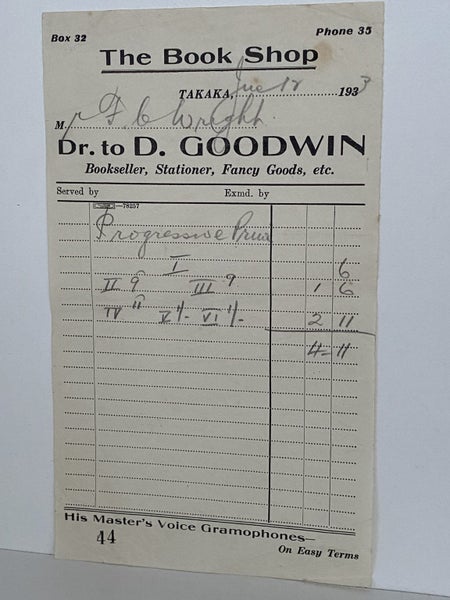 Box 32 Phone 35
The Book Shop
TAKAKA, June 12 1933
M r F C Wright
Dr. to D. GOODWIN
Bookseller, Stationer, Fancy Goods, etc.
Served by Exmd. by
—78257
Progressive Prim
I 6
II 9 III 9 1 6
IV 11 V 1/- VI 1/- 2 11
4 11
His Master's Voice Gramophones—
44 On Easy Terms